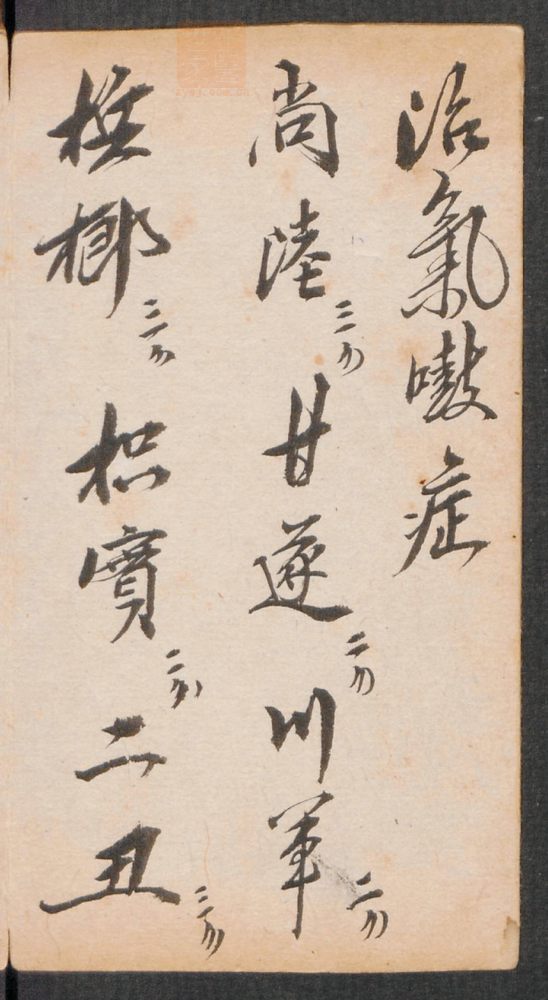 治氣嗽症
尚陸三分 甘遂二分 川軍二分
梹榔三分 枳實二分 二丑三分